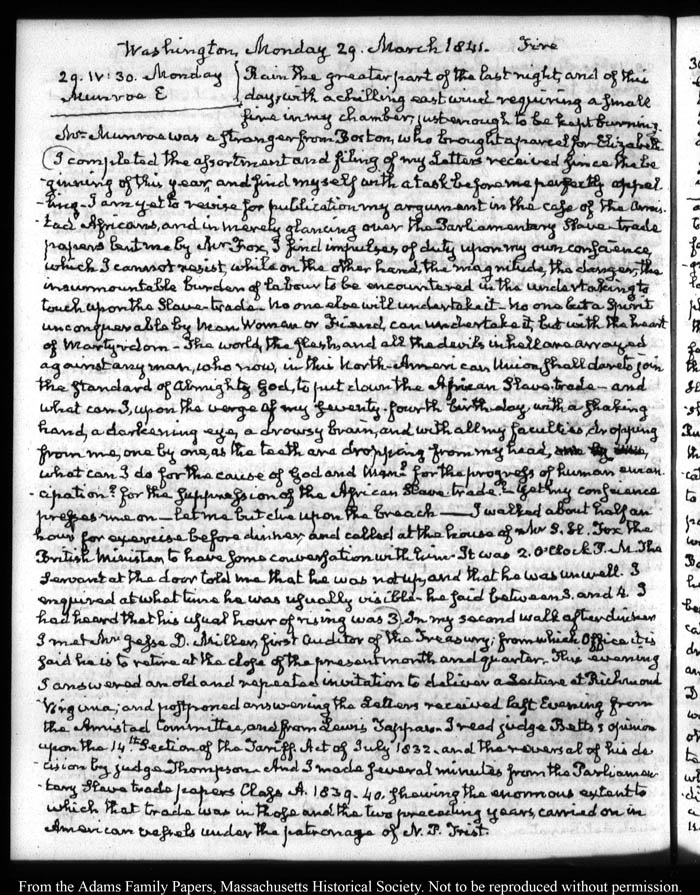 Washington, Monday 29. March 1841. Fire
29. IV:30. Monday
Munroe E
Rain the greater part of the last night, and of this
day, with a chilling east wind requiring a small
fire in my chamber, just enough to be kept burning.
Mr Munroe was a stranger from Boston, who brought a parcel for Elizabeth.
I completed the assortment and filing of my Letters received since the be
-ginning of this year, and find myself with a task before me perfectly appal
-ling. I am yet to revise for publication my argument in the case of the Amis-
-tad Africans, and in merely glancing over the Parliamentary Slave-trade
papers lent me by Mr Fox, I find impulses of duty upon my own conscience,
which I cannot resist, while on the other hand, the magnitude, the danger, the
insurmountable burden of labour to be encountered in the undertaking to
touch upon the Slave-trade. No one else will undertake it. No one but a Spirit
unconquerable by Man Woman or Fiend, can undertake it, but with the heart
of Martyrdom. The world, the flesh, and all the devils in hell are arrayed
against any man, who now, in this North-American Union, shall dare to join
the standard of Almighty God, to put down the African Slave-trade - and
what can I, upon the verge of my seventy-fourth birth-day, with a shaking
hand, a darkening eye, a drowsy brain, and with all my faculties dropping
from me, one by one, as the teeth are dropping from my head,
what can I do for the cause of God and Man? for the progress of human eman-
-cipation? for the suppression of the African Slave-trade? - Yet my conscience
presses me on - let me but die upon the breach - I walked about half an
hour for exercise before dinner, and called at the house of Mr S. H. Fox the
British Minister, to have some conversation with him. It was 2. O'Clock P. M. The
servant at the door told me that he was not up, and that he was unwell. I
enquired at what time he was usually visible. he said between 3. and 4. I
had heard that his usual hour of rising was 3. In my second walk after dinner
I met Mr Jesse D. Miller, first Auditor of the Treasury; from which Office it is
said he is to retire at the close of the present month and quarter. This evening
I answered an old and repeated invitation to deliver a Lecture at Richmond
Virginia; and postponed answering the Letters received last Evening from
the Amistad Committee, and from Lewis Tappan. I read judge Betts's opinion
upon the 14th Section of the Tariff Act of July 1832. and the reversal of his de
-cision by judge Thompson. And I made several minutes from the Parliamen
-tary Slave trade papers Class A. 1839. 40. shewing the enormous extent to
which that trade was in those and the two preceding years, carried on in
American vessels under the patronage of N. P. Trist.
From the Adams Family Papers, Massachusetts Historical Society. Not to be reproduced without permission.